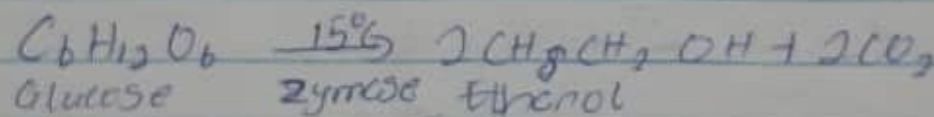 C6H12O6 15°C 2CH3CH2OH + 2CO2
Glucose Zymase Ethanol